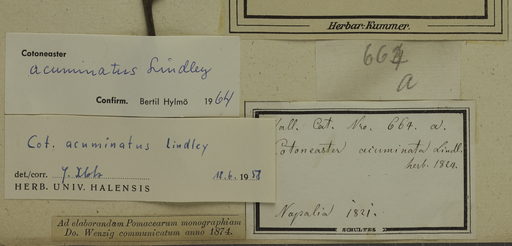 Herbar. Kummer.
Cotoneaster
acuminatus Lindley
Confirm. Bertil Hylmö 1964
664
a
Cot. acuminatus Lindley
det./corr. 18.6. 19
HERB. UNIV. HALENSIS
Wall. Cat. Nro. 664. a.
Cotoneaster acuminata Lindl.
herb. 1824.
Napalia 1821.
SCHULTES
Ad elaborandam Pomacearum monographiam
Do. Wenzig communicatum anno 1874.